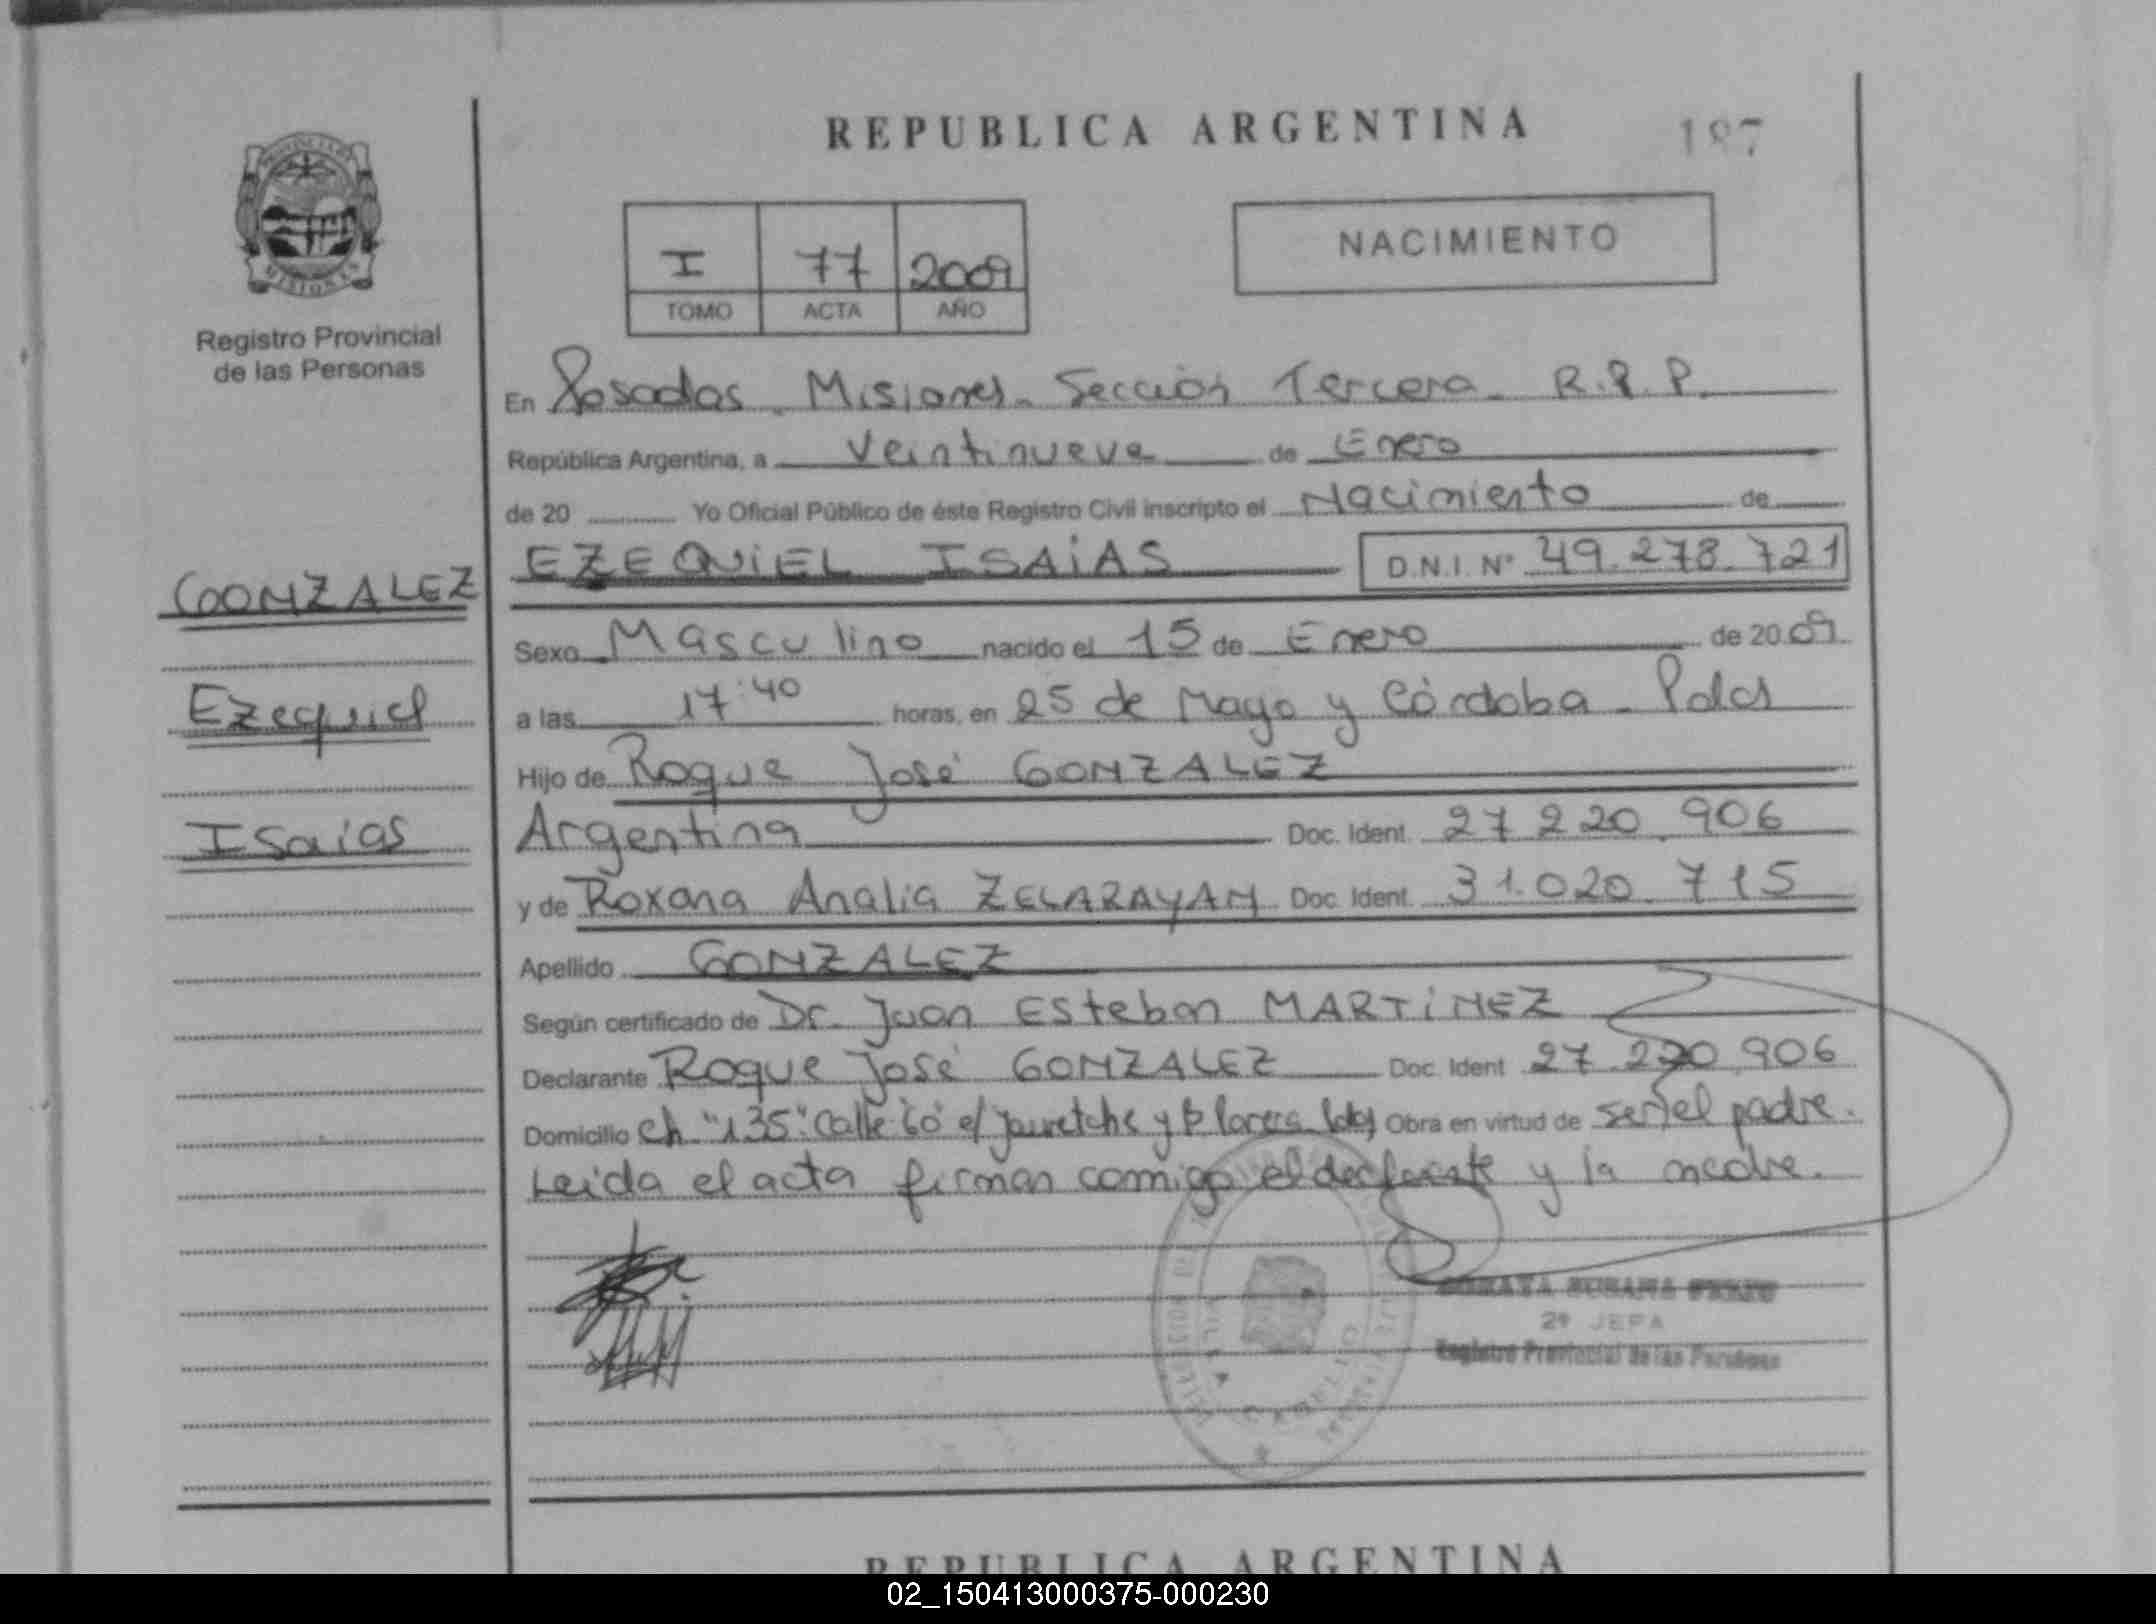 REPUBLICA ARGENTINA
187
MISIONES
Registro Provincial
de las Personas
I 77 2009
TOMO ACTA AÑO
NACIMIENTO
En Posadas. Misiones. Sección Tercera. R.P.P.
República Argentina, a veintinueve de Enero
de 20 Yo Oficial Público de éste Registro Civil inscripto el Nacimiento de
GONZALEZ
EZEQUIEL ISAÍAS D.N.I. Nº 49.278.721
Sexo Masculino nacido el 15 de Enero de 2009
Ezequiel
a las 17:40 horas, en 25 de Mayo y Córdoba - Pdas
Hijo de Roque José GONZALEZ
Isaias
Argentina Doc. Ident. 27.220.906
y de Roxana Analia ZELARAYAN Doc. Ident. 31.020.715
Apellido GONZALEZ
Según certificado de Dr. Juan Esteban MARTÍNEZ
Declarante Roque José GONZALEZ Doc. Ident 27.220.906
Domicilio Ch "135" Calle 60 e/ Jauretche y Obra en virtud de ser el padre.
Leida el acta firman comigo el declarante y la madre.
2º JEFA
Registro Provincial de las Personas
REPUBLICA ARGENTINA
02_150413000375-000230